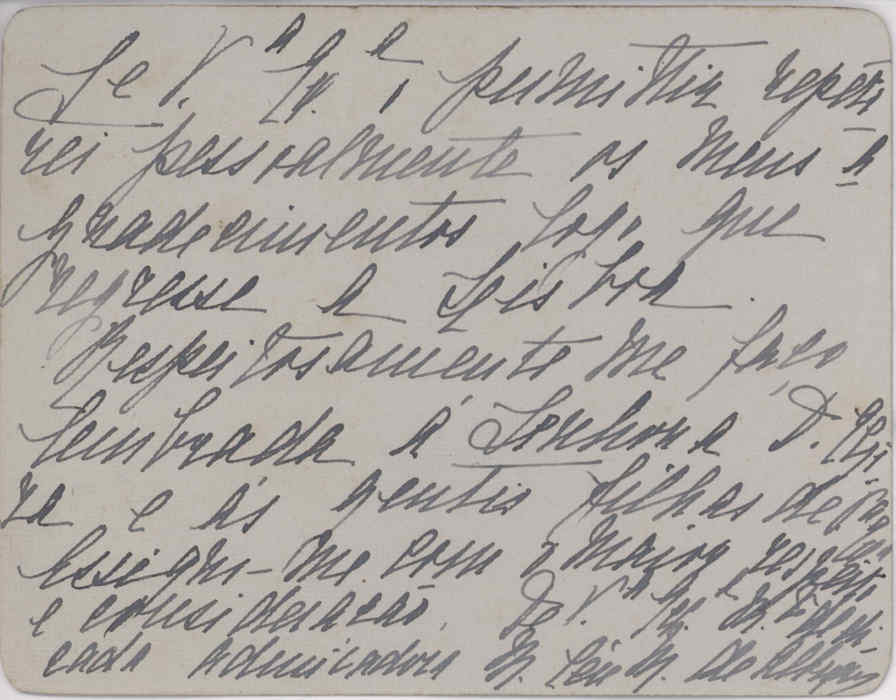 Se V.ª Ex.ª, permittir repeti
rei pessoalmente os meus a
gradecimentos logo que
regresse a Lisboa.
Respeitosamente me faço
lembrada á Senhora D.
ra e ás gentis filhas de
Assigno-me com a maior respeito
e consideração, De V.ª Ex.ª
cada admiradora